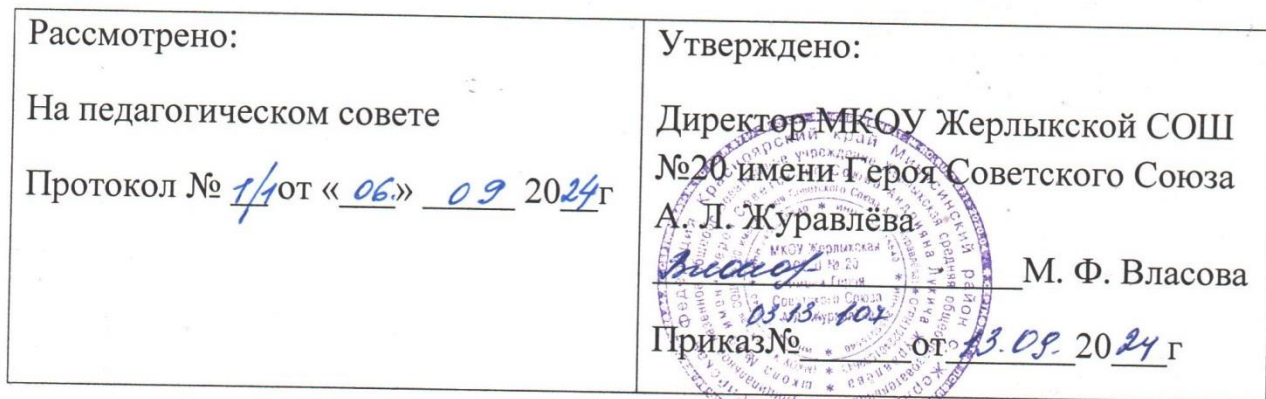 Рассмотрено:
На педагогическом совете
Протокол № 1/1 от «06.» 09 2024г
Утверждено:
Директор МКОУ Жерлыкской СОШ
№20 имени Героя Советского Союза
А. Л. Журавлёва
М. Ф. Власова
03.13.107
Приказ№ от 13.09. 2024 г
МКОУ Жерлыкская
СОШ № 20
имени Героя
Советского Союза